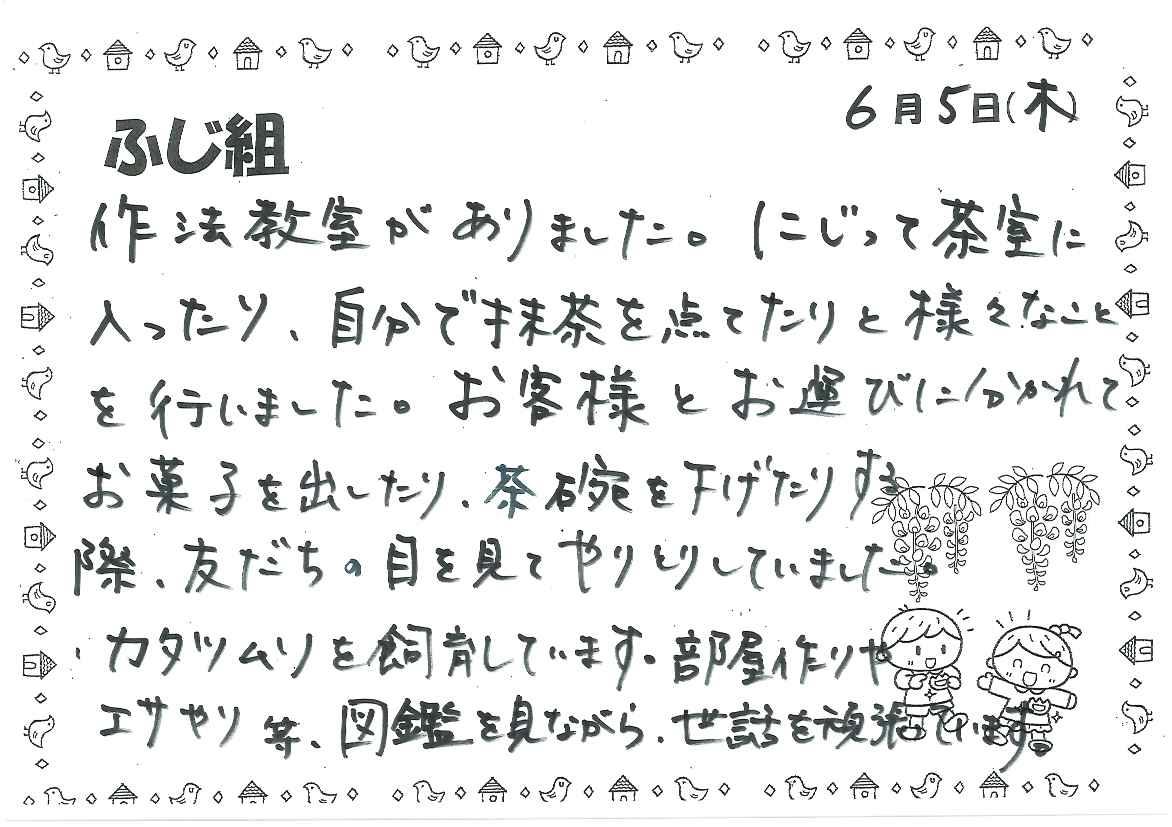 6月5日(木)
ふじ組
作法教室がありました。にじって茶室に
入ったり、自分で抹茶を点てたりと様々なこと
を行いました。お客様とお運びに分かれて
お菓子を出したり、茶碗を下げたりする
際、友だちの目を見てやりとりしていました。
・カタツムリを飼育しています。部屋作りや
エサやり等、図鑑を見ながら、世話を頑張っています。